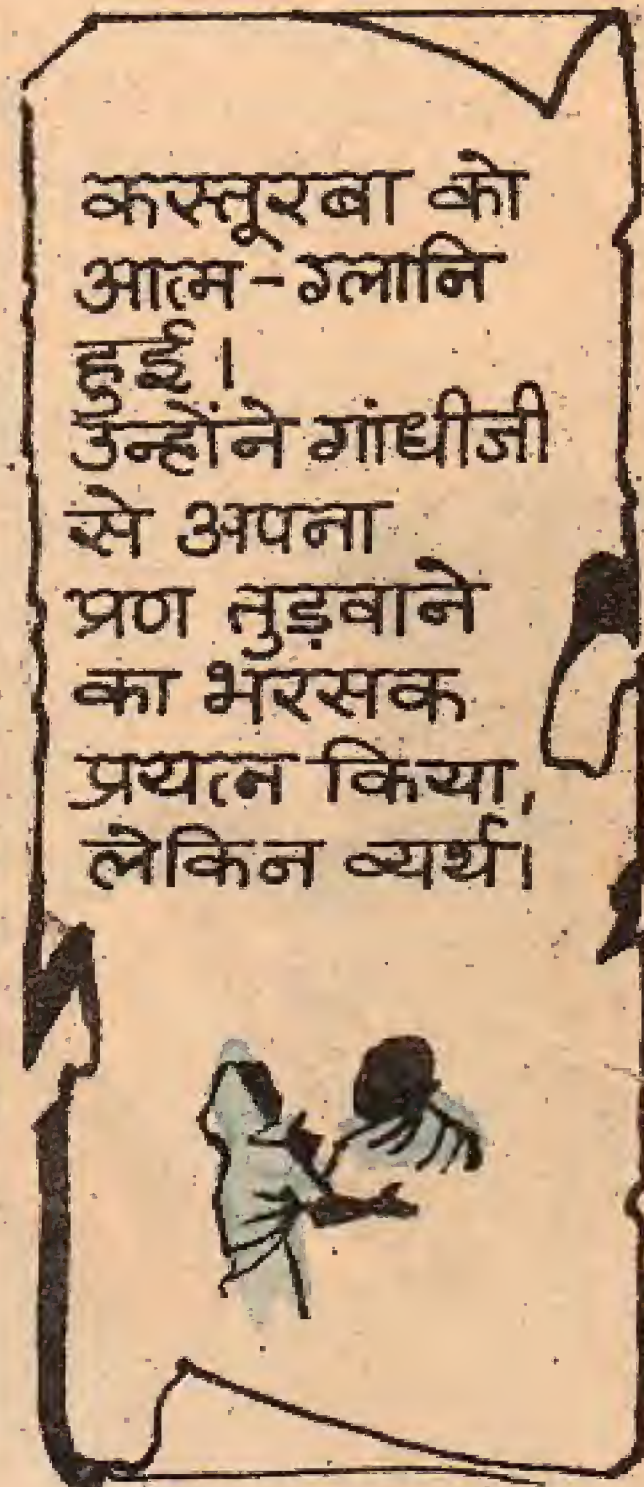 कस्तूरबा को
आत्म-ग्लानि
हुई।
उन्होंने गांधीजी
से अपना
प्रण तुड़वाने
का भरसक
प्रयत्न किया,
लेकिन व्यर्थ।